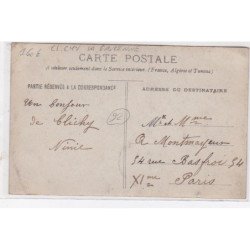 36 E CLICHY LA GARENNE
CARTE POSTALE
A utiliser seulement dans le Service intérieur (France, Algérie et Tunisie)
PARTIE RÉSERVÉE A LA CORRESPONDANCE
Un bonjour
de Clichy
Ninie
ADRESSE DU DESTINATAIRE
Mr et Mme
A Montmayeur
54 rue Basfroi 54
XIme
Paris